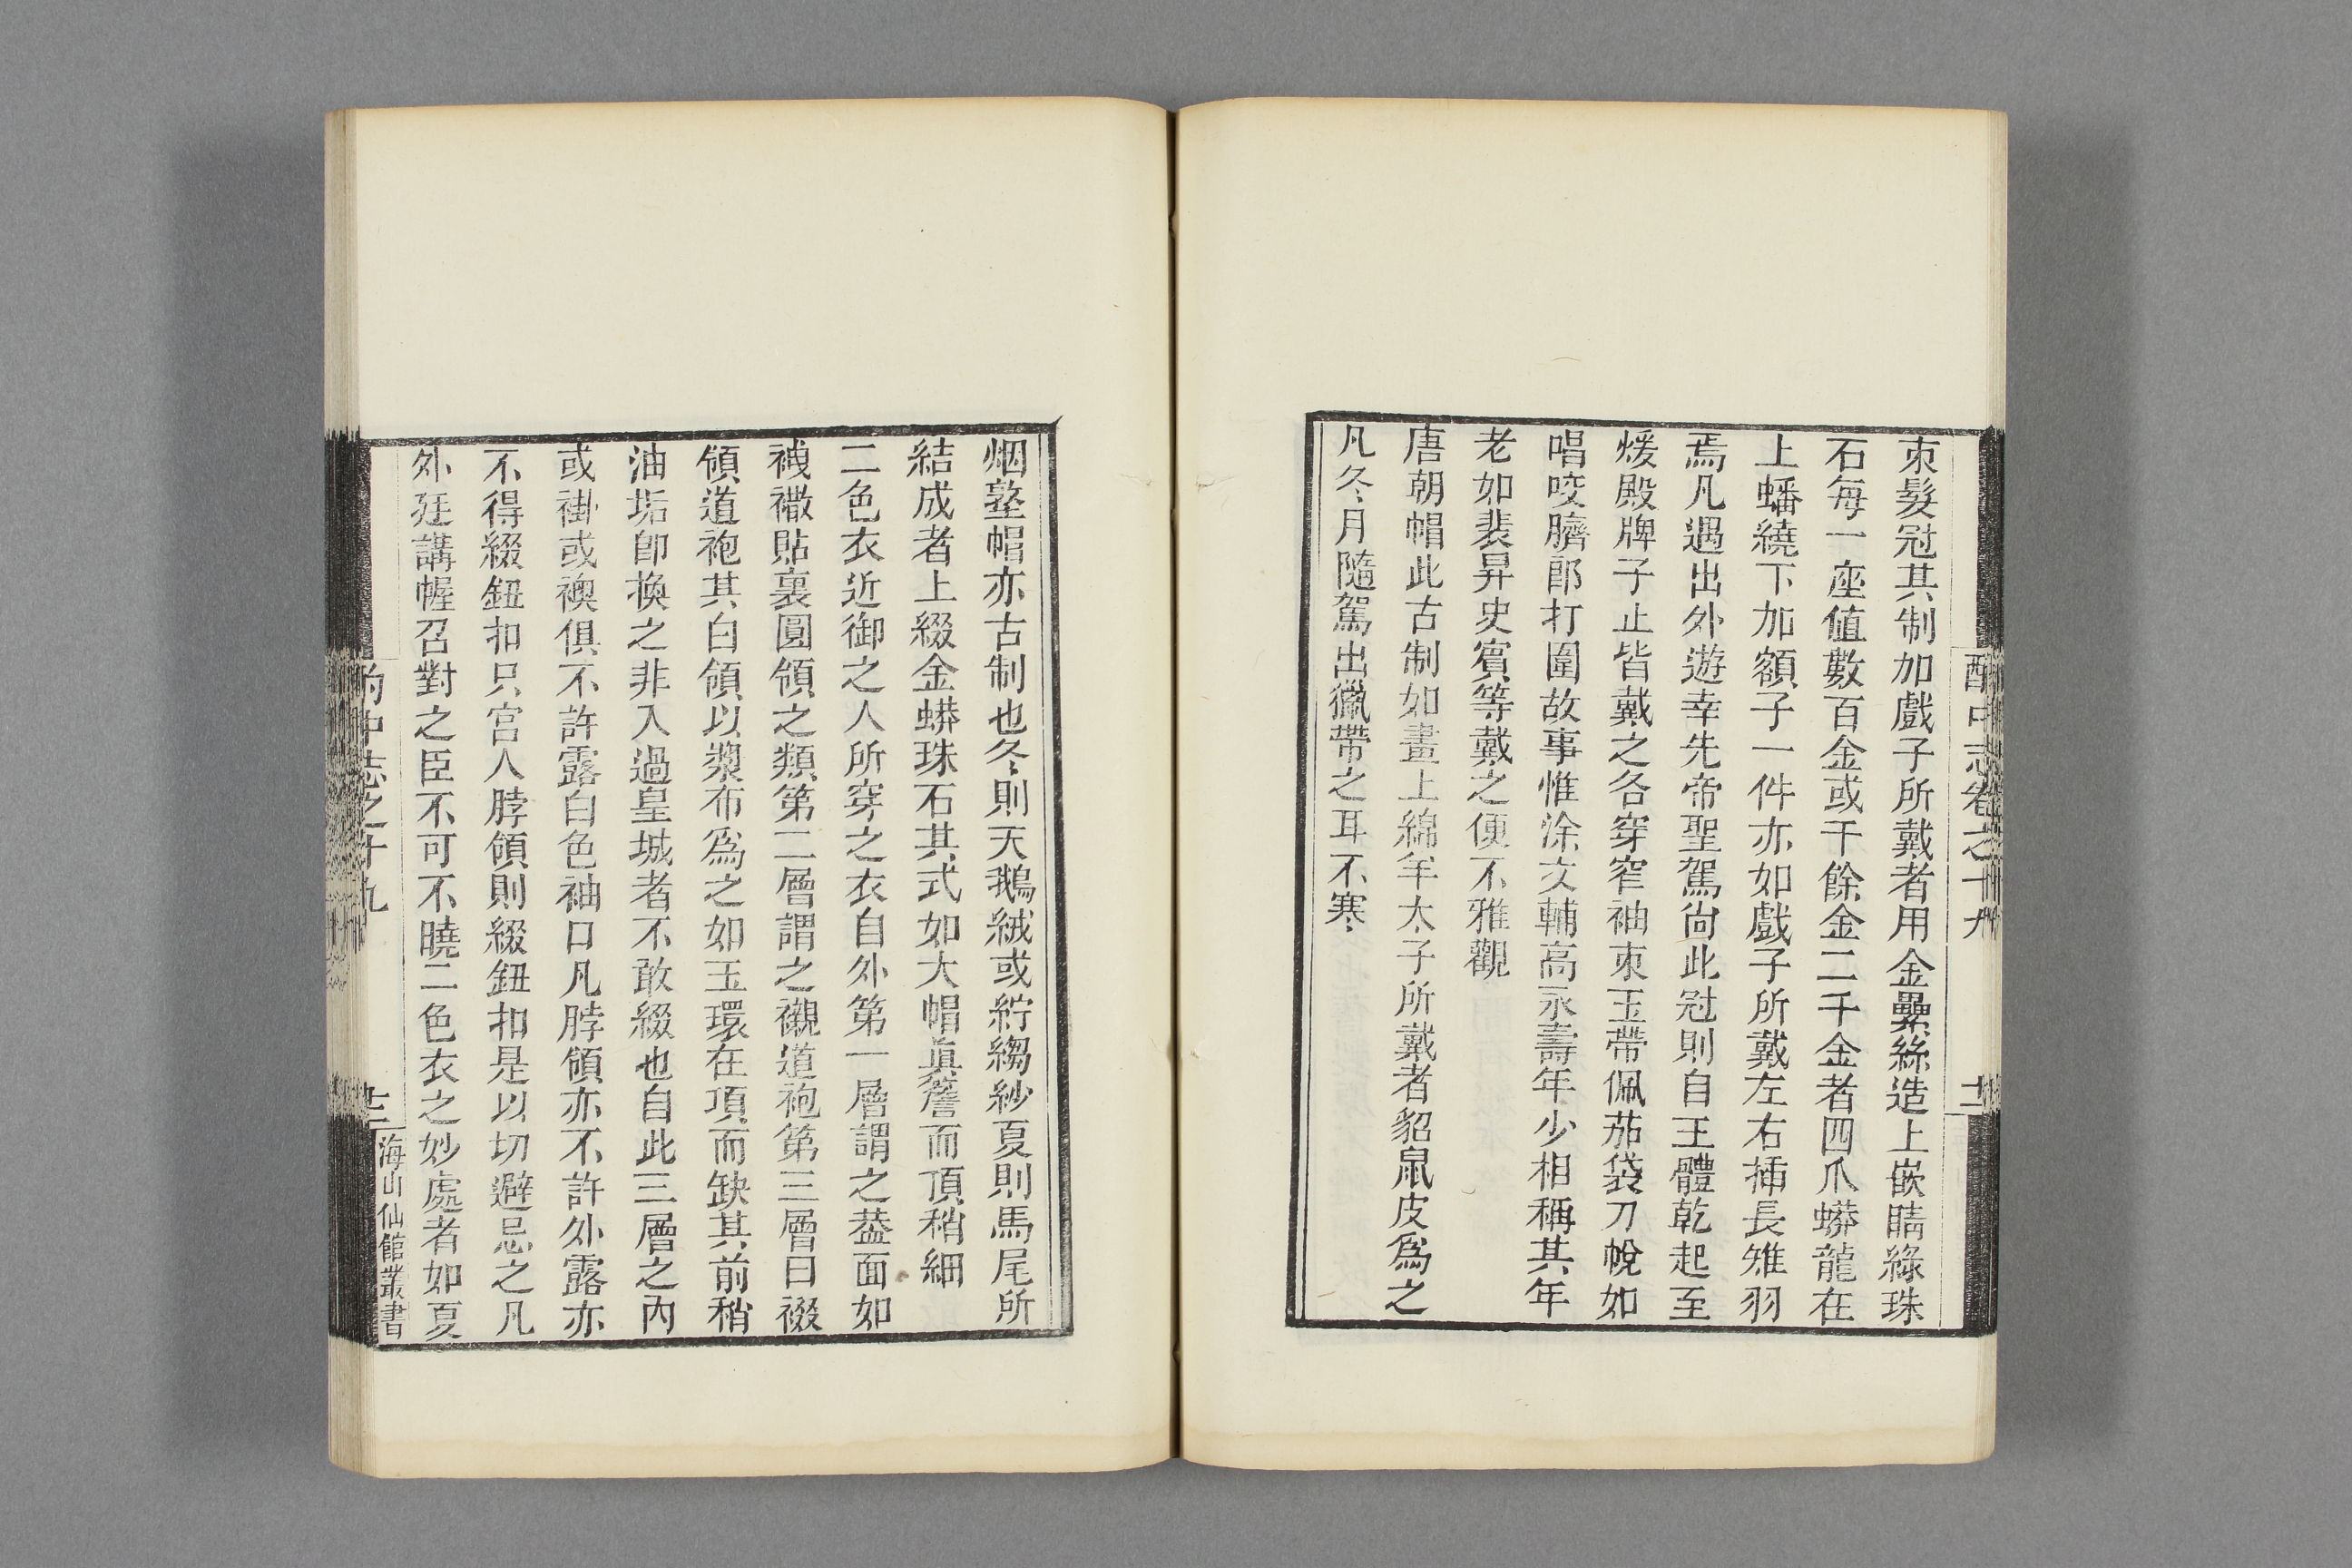 酌中志卷之十九
束髮冠其制加戲子所戴者用金纍絲造上嵌睛綠珠
石每一座値數百金或千餘金二千金者四爪蟒龍在
上蟠繞下加額子一件亦如戲子所戴左右揷長雉羽
焉凡遇出外遊幸先帝聖駕尙此冠則自王體乾起至
煖殿牌子止皆戴之各穿窄袖束玉帶佩茄袋刀帨如
唱咬臍郎打圍故事惟涂文輔高永壽年少相稱其年
老如裴昇史賓等戴之便不雅觀
唐朝帽此古制如畫上綿羊太子所戴者貂鼠皮爲之
凡冬月隨駕出獵帶之耳不寒
烟墪帽亦古制也冬則天鵝絨或紵縐紗夏則馬尾所
結成者上綴金蟒珠石其式如大帽眞簷而頂稍細
二色衣近御之人所穿之衣自外第一層謂之葢面如
襪襒貼裏圓領之類第二層謂之襯道袍第三層曰裰
領道袍其白領以漿布爲之如玉環在項而缺其前稍
油垢卽換之非入過皇城者不敢綴也自此三層之內
或褂或襖俱不許露白色袖口凡脖領亦不許外露亦
不得綴鈕扣只宮人脖領則綴鈕扣是以切避忌之凡
外廷講幄召對之臣不可不曉二色衣之妙處者如夏
酌中志之十九
海山仙館叢書